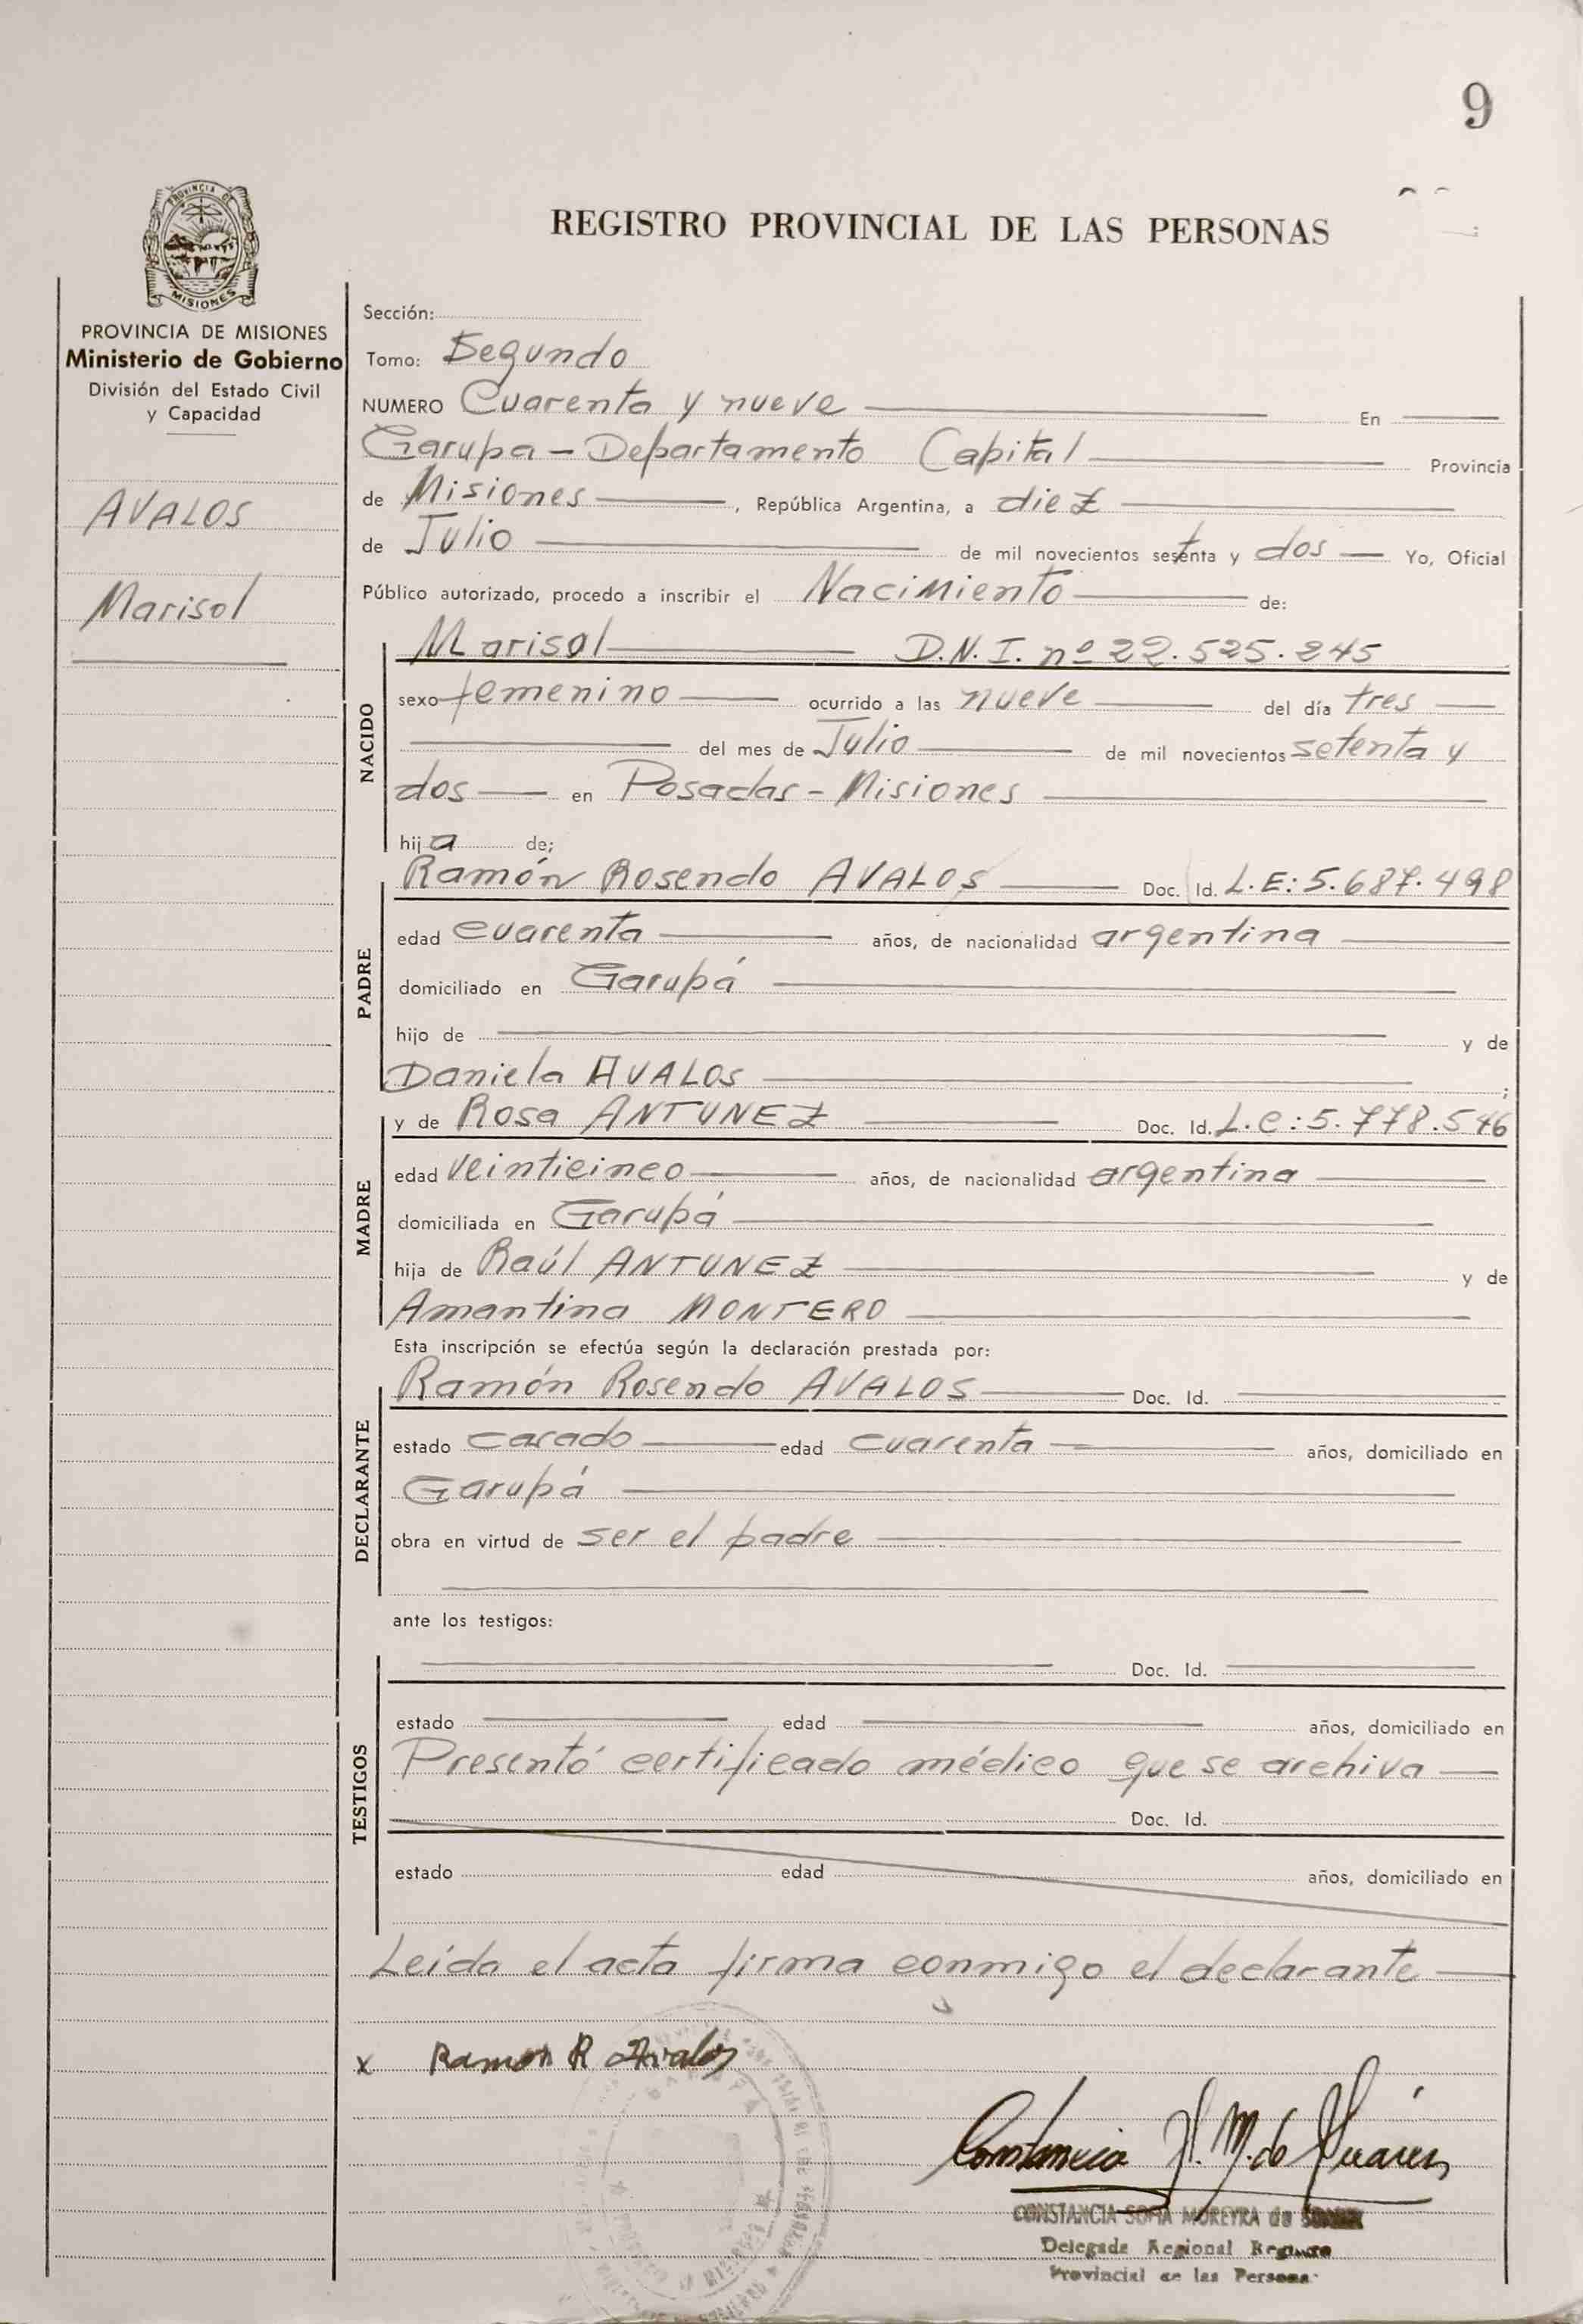 9
PROVINCIA DE
MISIONES
REGISTRO PROVINCIAL DE LAS PERSONAS
PROVINCIA DE MISIONES
Ministerio de Gobierno
División del Estado Civil
y Capacidad
AVALOS
Marisol
Sección:
Tomo: Segundo
NUMERO Cuarenta y nueve En
Garupa - Departamento Capital Provincia
de Misiones, República Argentina, a diez
de Julio de mil novecientos setenta y dos Yo, Oficial
Público autorizado, procedo a inscribir el Nacimiento de:
NACIDO
Marisol D.N.I. nº 22.525.245
sexo femenino ocurrido a las nueve del día tres
del mes de Julio de mil novecientos setenta y
dos en Posadas - Misiones
hija de;
PADRE
Ramón Rosendo AVALOS Doc. Id. L.E: 5.687.498
edad cuarenta años, de nacionalidad argentina
domiciliado en Garupá
hijo de y de
Daniela AVALOS ;
MADRE
y de Rosa ANTUNEZ Doc. Id. L.C: 5.778.546
edad veinticinco años, de nacionalidad argentina
domiciliada en Garupá
hija de Raúl ANTUNEZ y de
Amantina MONTERO
Esta inscripción se efectúa según la declaración prestada por:
DECLARANTE
Ramón Rosendo AVALOS Doc. Id.
estado casado edad cuarenta años, domiciliado en
Garupá
obra en virtud de ser el padre
ante los testigos:
TESTIGOS
Doc. Id.
estado edad años, domiciliado en
Presentó certificado médico que se archiva
Doc. Id.
estado edad años, domiciliado en
Leída el acta firma conmigo el declarante
x Ramon R Avalos
Constancia S. M. de Suárez
CONSTANCIA SOFIA MOREYRA de
Delegada Regional Registro
Provincial de las Personas